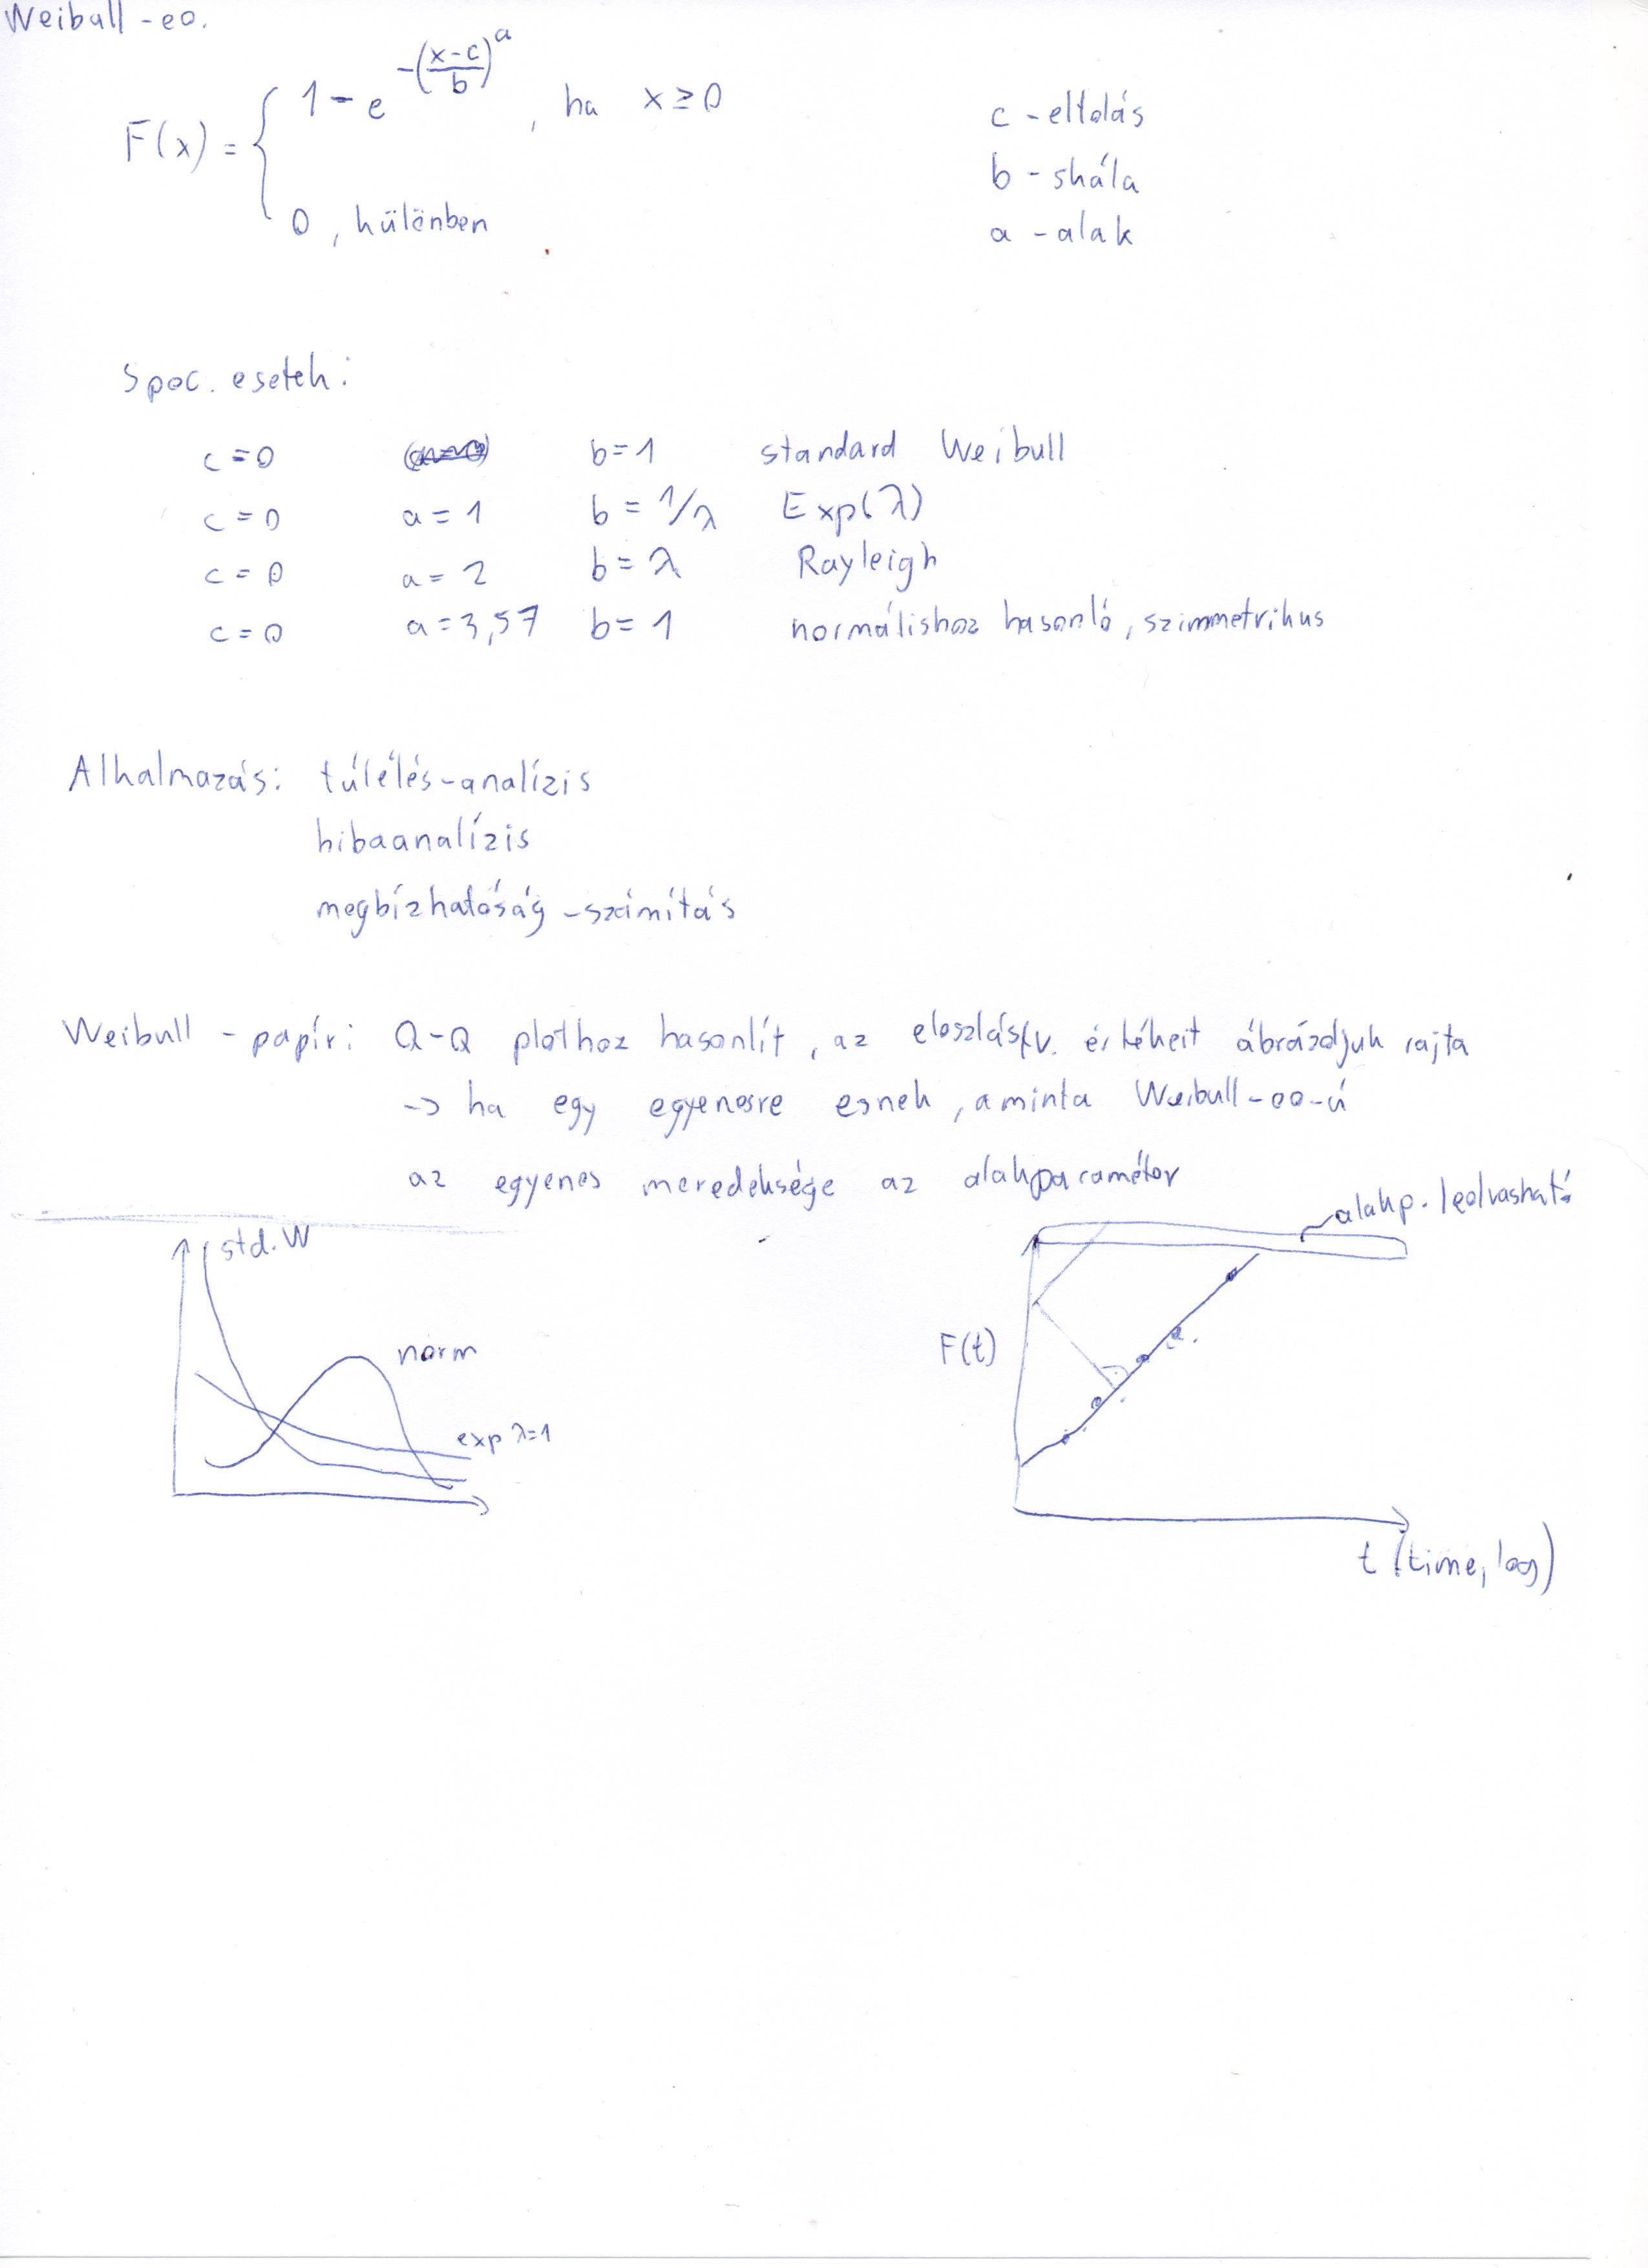 Weibull - eo.
F(x) = { 1 - e^{-((x-c)/b)^a} , ha x ≥ 0
0 , különben
c - eltolás
b - skála
a - alak
Spec. esetek:
c = 0 b = 1 standard Weibull
c = 0 a = 1 b = 1/λ Exp(λ)
c = 0 a = 2 b = λ Rayleigh
c = 0 a = 3,57 b = 1 normálishoz hasonló, szimmetrikus
Alkalmazás: túlélés-analízis
hibaanalízis
megbízhatóság-számítás
Weibull - papír: Q-Q plothoz hasonlít, az eloszlásfv. értékeit ábrázoljuk rajta
-> ha egy egyenesre esnek, a minta Weibull-eo-ú
az egyenes meredeksége az alakparaméter
std. W
norm
exp λ=1
alakp. leolvasható
F(t)
t (time, log)